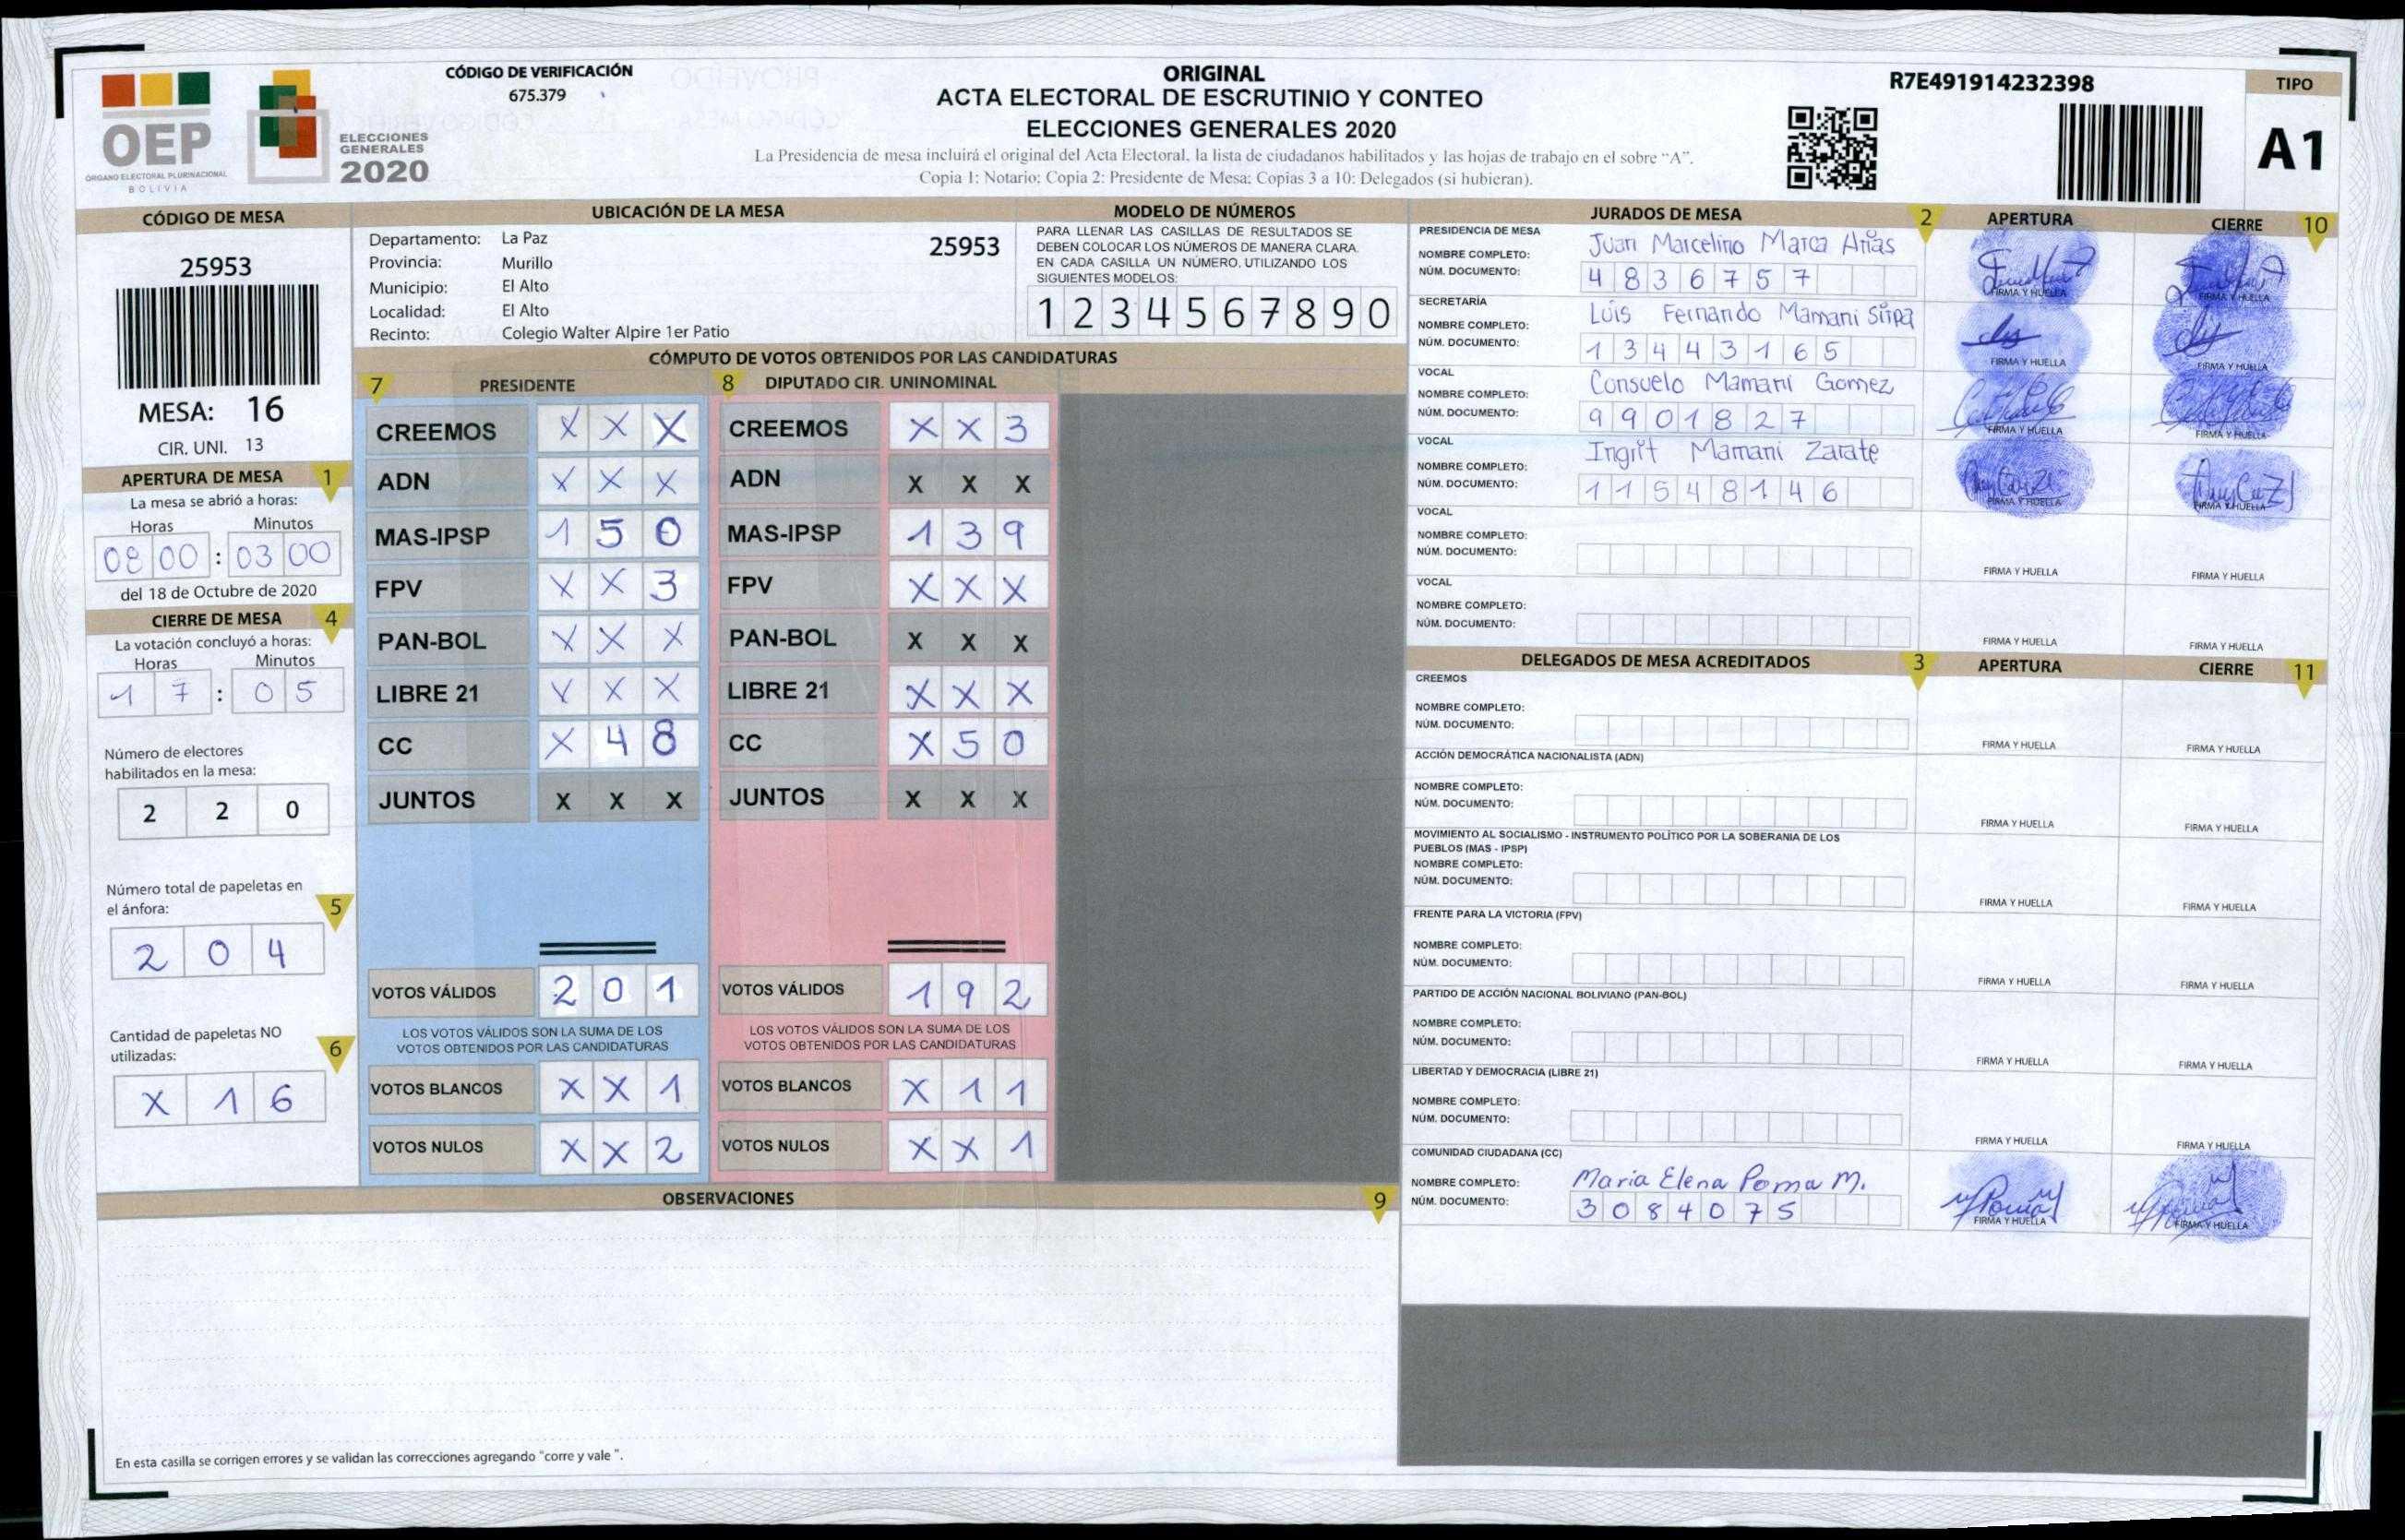 CÓDIGO DE VERIFICACIÓN
675.379
OEP
ÓRGANO ELECTORAL PLURINACIONAL
BOLIVIA
ELECCIONES
GENERALES
2020
ORIGINAL
ACTA ELECTORAL DE ESCRUTINIO Y CONTEO
ELECCIONES GENERALES 2020
La Presidencia de mesa incluirá el original del Acta Electoral, la lista de ciudadanos habilitados y las hojas de trabajo en el sobre "A".
Copia 1: Notario; Copia 2: Presidente de Mesa; Copias 3 a 10: Delegados (si hubieran).
R7E491914232398
TIPO
A1
CÓDIGO DE MESA
25953
MESA: 16
CIR. UNI. 13
APERTURA DE MESA 1
La mesa se abrió a horas:
Horas Minutos
08 00 : 03 00
del 18 de Octubre de 2020
CIERRE DE MESA 4
La votación concluyó a horas:
Horas Minutos
1 7 : 0 5
Número de electores
habilitados en la mesa:
2 2 0
Número total de papeletas en
el ánfora: 5
2 0 4
Cantidad de papeletas NO
utilizadas: 6
X 1 6
UBICACIÓN DE LA MESA
Departamento: La Paz
25953
Provincia: Murillo
Municipio: El Alto
Localidad: El Alto
Recinto: Colegio Walter Alpire 1er Patio
MODELO DE NÚMEROS
PARA LLENAR LAS CASILLAS DE RESULTADOS SE
DEBEN COLOCAR LOS NÚMEROS DE MANERA CLARA.
EN CADA CASILLA UN NÚMERO. UTILIZANDO LOS
SIGUIENTES MODELOS:
1 2 3 4 5 6 7 8 9 0
CÓMPUTO DE VOTOS OBTENIDOS POR LAS CANDIDATURAS
7 PRESIDENTE
CREEMOS X X X
ADN X X X
MAS-IPSP 1 5 0
FPV X X 3
PAN-BOL X X X
LIBRE 21 X X X
CC X 4 8
JUNTOS X X X
VOTOS VÁLIDOS 2 0 1
LOS VOTOS VÁLIDOS SON LA SUMA DE LOS
VOTOS OBTENIDOS POR LAS CANDIDATURAS
VOTOS BLANCOS X X 1
VOTOS NULOS X X 2
8 DIPUTADO CIR. UNINOMINAL
CREEMOS X X 3
ADN X X X
MAS-IPSP 1 3 9
FPV X X X
PAN-BOL X X X
LIBRE 21 X X X
CC X 5 0
JUNTOS X X X
VOTOS VÁLIDOS 1 9 2
LOS VOTOS VÁLIDOS SON LA SUMA DE LOS
VOTOS OBTENIDOS POR LAS CANDIDATURAS
VOTOS BLANCOS X 1 1
VOTOS NULOS X X 1
OBSERVACIONES 9
En esta casilla se corrigen errores y se validan las correcciones agregando "corre y vale ".
JURADOS DE MESA 2 APERTURA CIERRE 10
PRESIDENCIA DE MESA
NOMBRE COMPLETO: Juan Marcelino Marca Arias
NÚM. DOCUMENTO: 4 8 3 6 7 5 7
FIRMA Y HUELLA FIRMA Y HUELLA
SECRETARÍA
NOMBRE COMPLETO: Luis Fernando Mamani Siipa
NÚM. DOCUMENTO: 1 3 4 4 3 1 6 5
FIRMA Y HUELLA FIRMA Y HUELLA
VOCAL
NOMBRE COMPLETO: Consuelo Mamani Gomez
NÚM. DOCUMENTO: 9 9 0 1 8 2 7
FIRMA Y HUELLA FIRMA Y HUELLA
VOCAL
NOMBRE COMPLETO: Ingrit Mamani Zarate
NÚM. DOCUMENTO: 1 1 5 4 8 1 4 6
FIRMA Y HUELLA FIRMA Y HUELLA
VOCAL
NOMBRE COMPLETO:
NÚM. DOCUMENTO:
FIRMA Y HUELLA FIRMA Y HUELLA
VOCAL
NOMBRE COMPLETO:
NÚM. DOCUMENTO:
FIRMA Y HUELLA FIRMA Y HUELLA
DELEGADOS DE MESA ACREDITADOS 3 APERTURA CIERRE 11
CREEMOS
NOMBRE COMPLETO:
NÚM. DOCUMENTO:
FIRMA Y HUELLA FIRMA Y HUELLA
ACCIÓN DEMOCRÁTICA NACIONALISTA (ADN)
NOMBRE COMPLETO:
NÚM. DOCUMENTO:
FIRMA Y HUELLA FIRMA Y HUELLA
MOVIMIENTO AL SOCIALISMO - INSTRUMENTO POLÍTICO POR LA SOBERANIA DE LOS
PUEBLOS (MAS - IPSP)
NOMBRE COMPLETO:
NÚM. DOCUMENTO:
FIRMA Y HUELLA FIRMA Y HUELLA
FRENTE PARA LA VICTORIA (FPV)
NOMBRE COMPLETO:
NÚM. DOCUMENTO:
FIRMA Y HUELLA FIRMA Y HUELLA
PARTIDO DE ACCIÓN NACIONAL BOLIVIANO (PAN-BOL)
NOMBRE COMPLETO:
NÚM. DOCUMENTO:
FIRMA Y HUELLA FIRMA Y HUELLA
LIBERTAD Y DEMOCRACIA (LIBRE 21)
NOMBRE COMPLETO:
NÚM. DOCUMENTO:
FIRMA Y HUELLA FIRMA Y HUELLA
COMUNIDAD CIUDADANA (CC)
NOMBRE COMPLETO: Maria Elena Poma M.
NÚM. DOCUMENTO: 3 0 8 4 0 7 5
FIRMA Y HUELLA FIRMA Y HUELLA